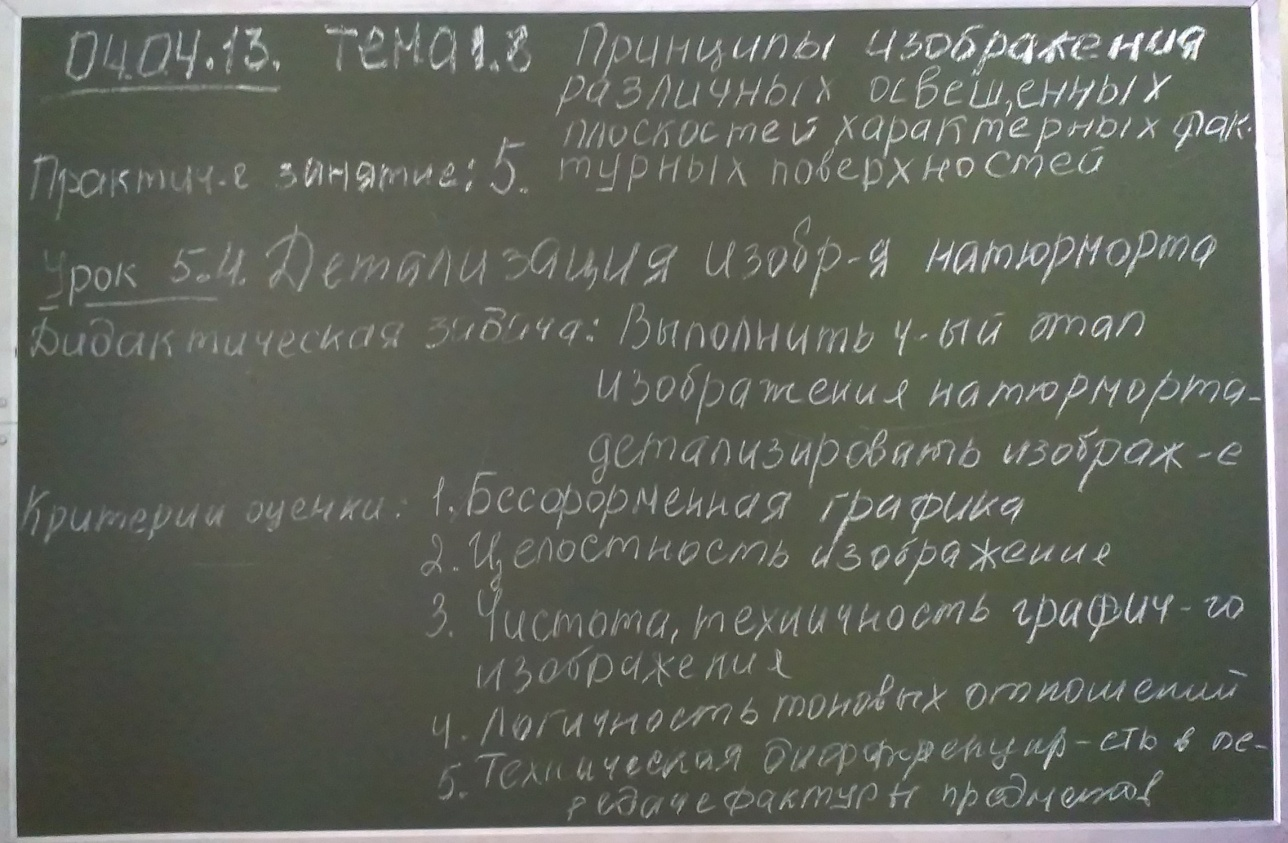 04.04.13. Тема 1.8 Принципы изображения
различных освещенных
плоскостей характерных фак-
Практич-е занятие: 5. турных поверхностей
Урок 5.4. Детализация изобр-я натюрморта
Дидактическая задача: Выполнить 4-ый этап
изображения натюрморта-
детализировать изображ-е
Критерии оценки: 1. Бессформенная графика
2. Целостность изображение
3. Чистота, техничность графич-го
изображения
4. Логичность тоновых отношений
5. Техническая дифференцир-сть в пе-
редаче фактуры предметов